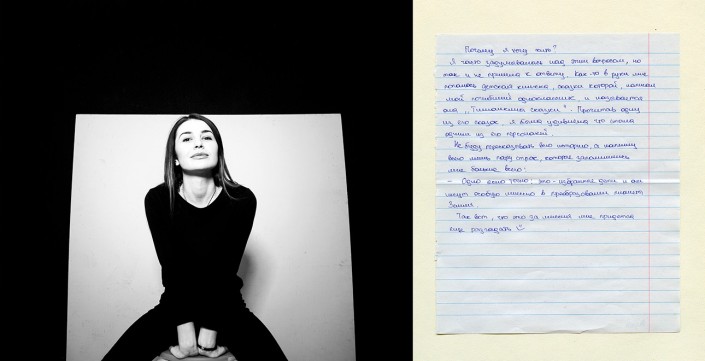 Почему я хочу жить?
Я часто задумывалась над этим вопросом, но
так и не пришла к ответу. Как-то в руки мне
попалась детская книжка, сказки которой написал
мой погибший одноклассник, и называется
она " сказки". Прочитав одну
из его сказок, я была удивлена что стала
одним из его персонажей.
Не буду пересказывать всю историю, а напишу
всего лишь пару строк, которые запомнились
мне больше всего:
- Одно ясно точно: это - избранные дети и они
несут особую миссию в преобразовании планеты
Земля.
Так вот, что это за миссия мне придется
еще разгадать